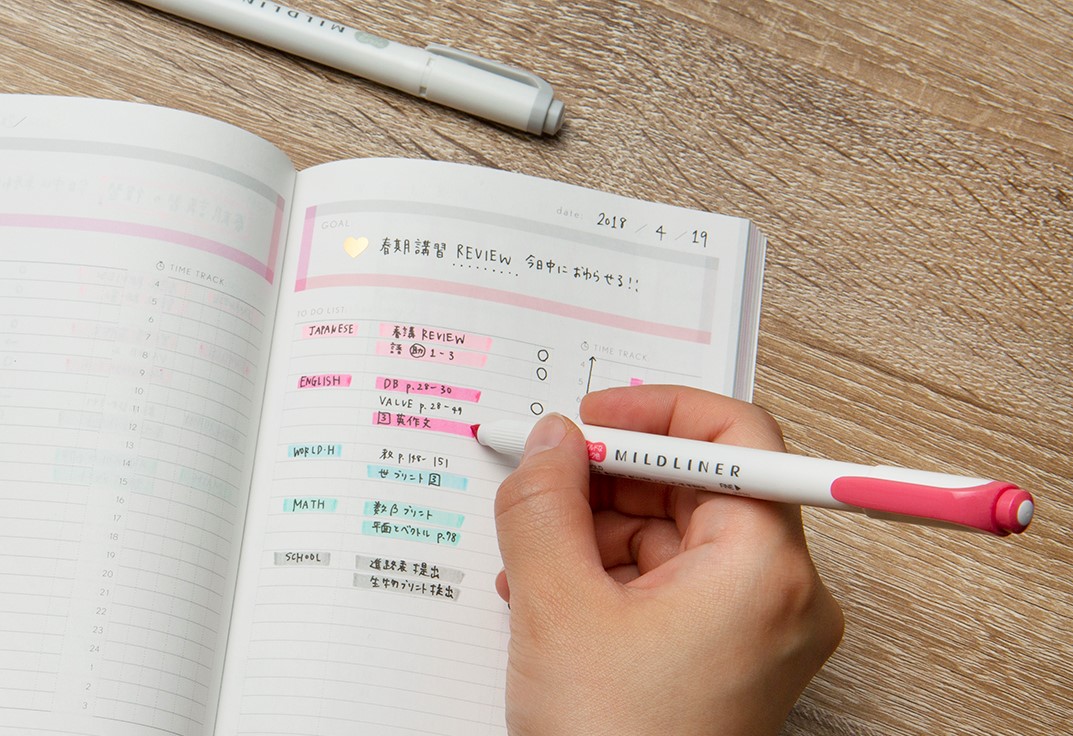 MILDLIN
date: 2018 / 4 / 19
GOAL
春期講習 REVIEW 今日中におわらせる!!
TO DO LIST
JAPANESE 春講 REVIEW
語 助 1-3
ENGLISH DB p.28-30
VALUE p.28-49
英作文
WORLD.H 教 p.148-151
世プリント
MATH 数βプリント
平面とベクトル p.78
SCHOOL 進路表提出
生物プリント提出
TIME TRACK
4
5
TIME TRACK
4
5
6
7
8
9
10
11
12
13
14
15
16
17
18
19
20
21
22
23
24
1
2
3
MILDLINER